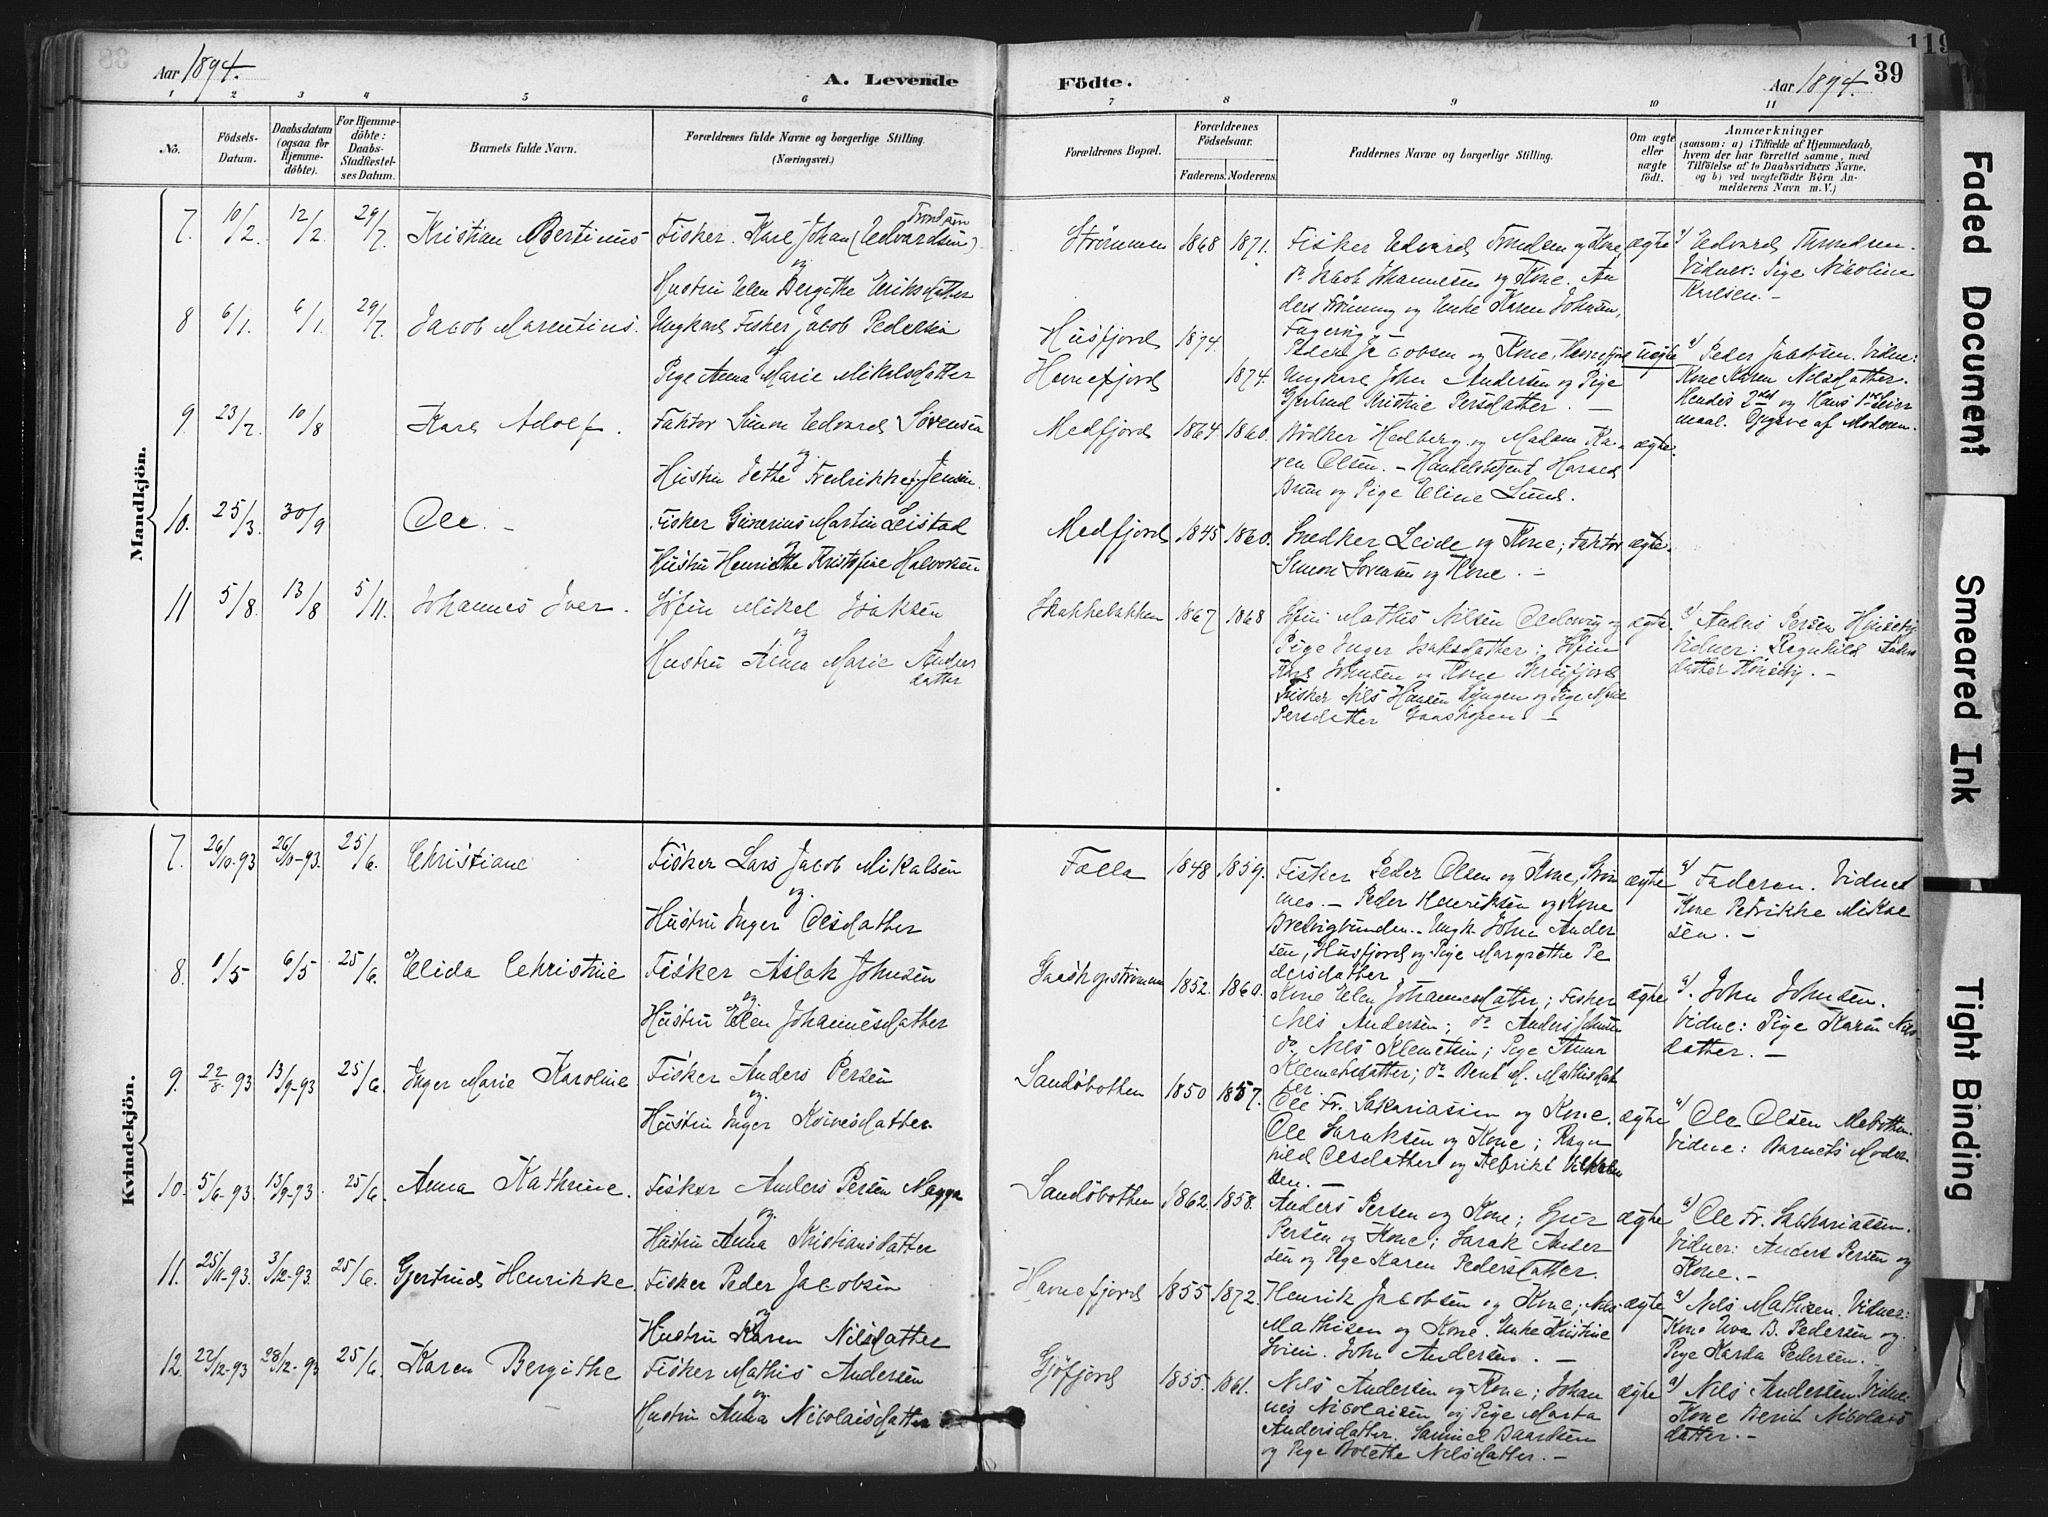 Aar 1894.
A. Levende
Födte.
Aar 1894.
39
119
1 2 3 4 5 6 7 8 9 10 11
No.
Födsels-Datum.
Daabsdatum (ogsaa for Hjemmedöbte).
For Hjemmedöbte: Daabs-Stadfæstelses Datum.
Barnets fulde Navn.
Forældrenes fulde Navne og borgerlige Stilling. (Næringsvei.)
Forældrenes Bopæl.
Forældrenes Födselsaar.
Faderens. Moderens.
Faddernes Navne og borgerlige Stilling.
Om ægte eller uægte födt.
Anmærkninger
(saasom: a) i Tilfælde af Hjemmedaab, hvem der har forrettet samme, med Tilföielse af to Daabsvidners Navne, og b) ved uægtefödte Börn Anmelderens Navn m. V.)
Mandkjön.
7. 10/2. 12/2. 29/7 Kristian Bertinus Fisker Karl Johan (Edvardsen) Trondsen
og
Hustru Elen Bergithe Eriksdatter
Strømmen 1868 1871.
Fisker Edvard Trondsen og Kone,
do Jacob Johannesen og Kone. An
ders Frönung og Enke Karen Johnsen,
Fagervig. —
ægte
a) Edvard Trondsen.
Vidner: Pige Nicoline
Karlsen. —
8 6/1. 6/1 29/7. Jacob Marentius. Ungkarl Fisker Jacob Pedersen
og
Pige Anna Marie Mikelsdatter
Husfjord 1874.
Havnefjord 1874.
Peder Jacobsen og Kone, Havnefjord
Ungkarl John Andersen og Pige
Gjertrud Kristine Persdatter. —
uægte
a) Peder Jacobsen. Vidne:
Kone Karen Nilsdatter.
Hendes 2det og Hans 1ste Leier
maal. Opgave af Moderen.
9. 23/7. 10/8 Karl Adolf. Faktor Simon Edvard Sörensen
og
Hustru Jethe Fredrikke Jensen.
Medfjord 1864 1860.
Bödker Hedberg og Madam Ka-
ren Olsen. — Handelsbetjent Harald
Brun og Pige Eline Lund.
ægte.
10. 25/3. 30/9 Ole. — Fisker Gunerius Martin Leistad
og
Hustru Henriethe Kristofine Halvorsen
Medfjord 1845 1860.
Snedker Leide og Kone; Faktor
Simon Sörensen og Kone. —
ægte.
11 5/8. 13/8 5/11. Johannes Iver. Söfin Mikel Isaksen
og
Hustru Anna Marie Anders
datter
Skakkebakken 1867 1868
Söfin Mathis Nilsen og
Pige Inger Isaksdatter; Söfin
Johnsen og Kone
Fisker Nils Hansen og Pige
Persdatter Gaashopen. —
ægte.
a) Anders Persen
Vidner: Ragnhild Anders
datter —
Kvindekjön.
7. 26/10-93 26/10-93. 25/6. Christiane Fisker Lars Jacob Mikalsen
og
Hustru Inger Olsdatter
Falla 1848 1859.
Fisker Peder Olsen og Kone, Ström
men. — Peder Henriksen og Kone
Bredvigbunden. Ungk. John Ander
sen, Husfjord og Pige Margrethe Pe
dersdatter.
ægte
a) Faderen. Vidne
Kone Petrikke Mikal
sen. —
8. 1/5 6/5 25/6. Elida Christine Fisker Aslak Johnsen
og
Hustru Elen Johannesdatter
Gaashopströmmen 1852. 1860.
Kone Elen Johannesdatter; Fisker
Nils Andersen; do Anders Johnsen
do. Nils Klemetsen; Pige Anna
Klemetsdatter; do Berit M. Mathisdat
ter.
ægte
a). John Johnsen.
Vidne: Pige Karen Nils
datter. —
9. 22/8-93 13/9-93 25/6. Inger Marie Karoline Fisker Anders Persen
og
Hustru Inger
Sandöbotten 1850 1857.
Ole Fr. Sakariassen og Kone.
Ole Saraksen og Kone; Ragn
hild Olsdatter og Albrikt
sen. —
ægte
a) Ole Olsen
Vidne: Barnets Moder.
10. 5/6-93. 13/9-93 25/6 Anna Kathrine. Fisker Anders Persen Magga
og
Hustru Anna Kristiansdatter
Sandöbotten 1862. 1858.
Anders Persen og Kone; Gur
Persen og Kone; Sarak Ander
sen og Pige Karen Pedersdatter.
ægte
a) Ole Fr. Sakariassen.
Vidner: Anders Persen og
Kone. —
11. 25/11-93. 3/12-93. 25/6. Gjertrud Henrikke. Fisker Peder Jacobsen
og
Hustru Karen Nilsdatter
Havnefjord 1855 1872.
Henrik Jacobsen og Kone; Nils
Mathisen og Kone. Enke Kristine
John Andersen. —
ægte
a) Nils Mathisen. Vidner:
Kone Eva B. Pedersen og
Pige Marta Pedersen. —
12. 22/12-93 28/12-93 25/6 Karen Bergithe Fisker Mathis Andersen
og
Hustru Anna Nicolaisdatter
Gjöfjord 1855. 1861.
Nils Andersen og Kone; Johan
nes Nicolaisen og Pige Marta
Andersdatter. Samuel Baardsen
og Pige Bolette Nilsdatter. —
ægte
a) Nils Andersen. Vidne:
Kone Berit Nicolais
datter. —
Faded Document
Smeared Ink
Tight Binding